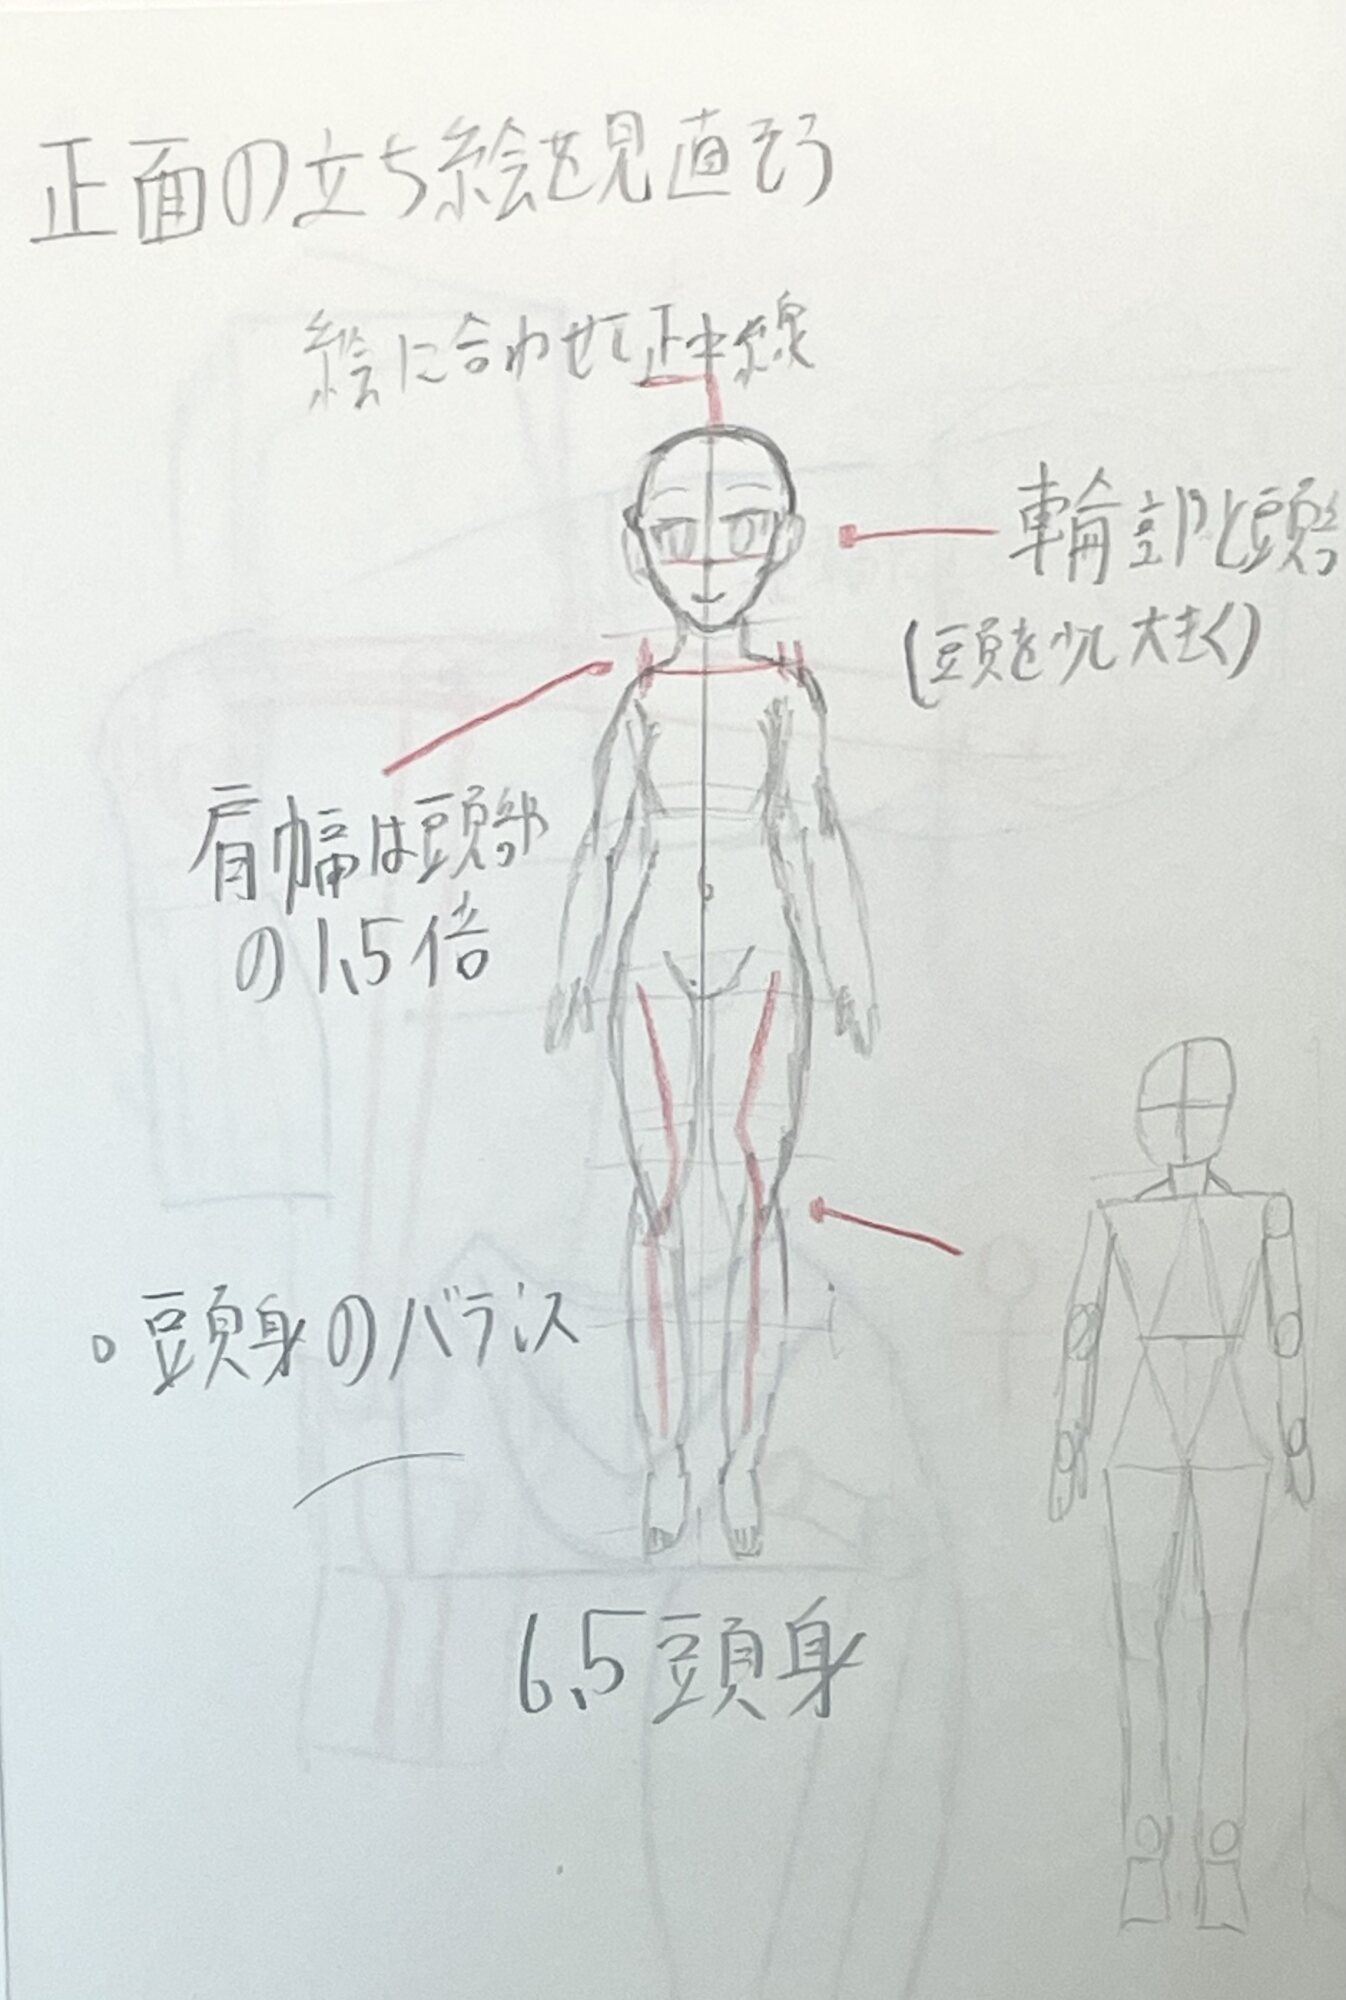 正面の立ち絵を見直そう
絵に合わせて正中線
輪郭と頭
(頭を少し大きく)
肩幅は頭部
の1.5倍
。頭身のバランス
6.5頭身